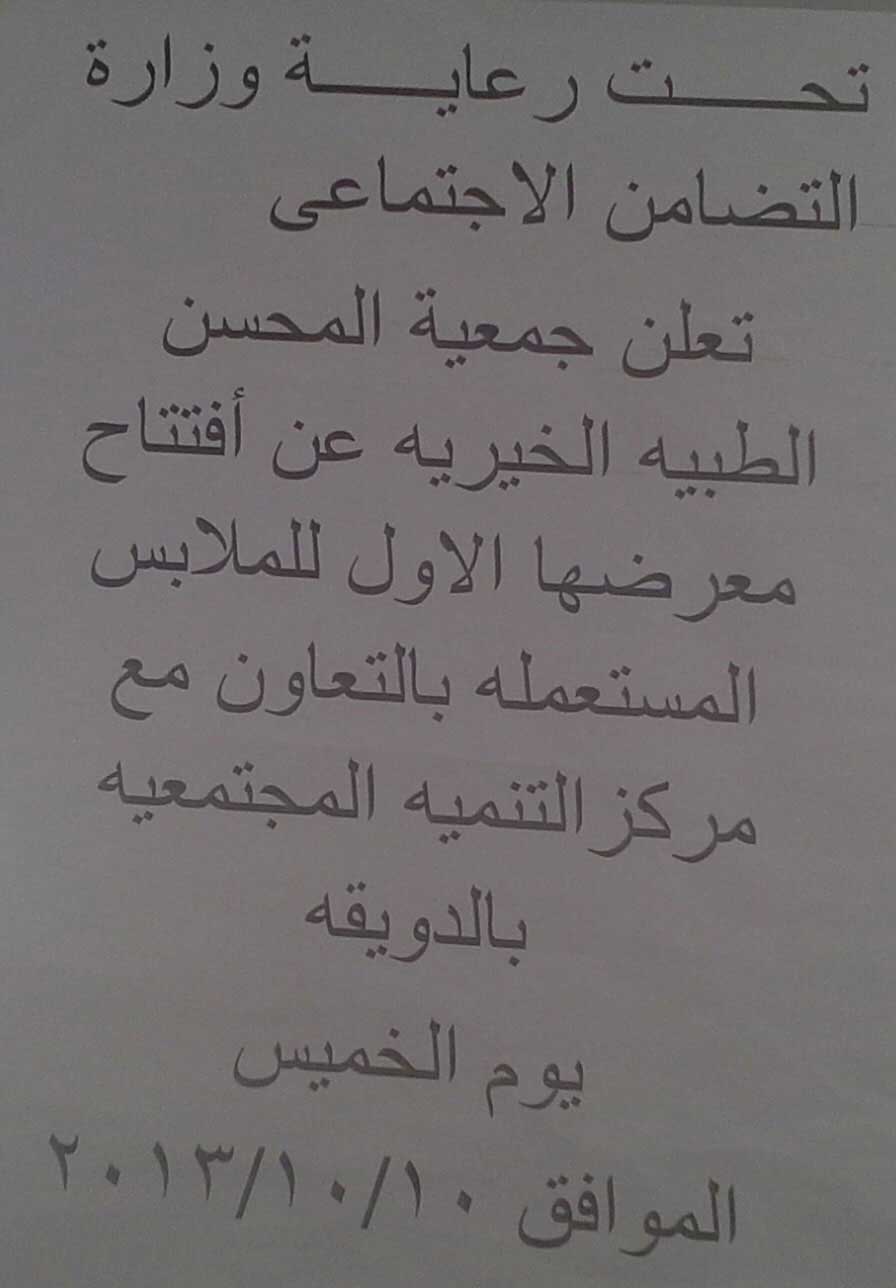 تحت رعاية وزارة
التضامن الاجتماعى
تعلن جمعية المحسن
الطبيه الخيريه عن أفتتاح
معرضها الاول للملابس
المستعمله بالتعاون مع
مركز التنميه المجتمعيه
بالدويقه
يوم الخميس
الموافق ٢٠١٣/١٠/١٠